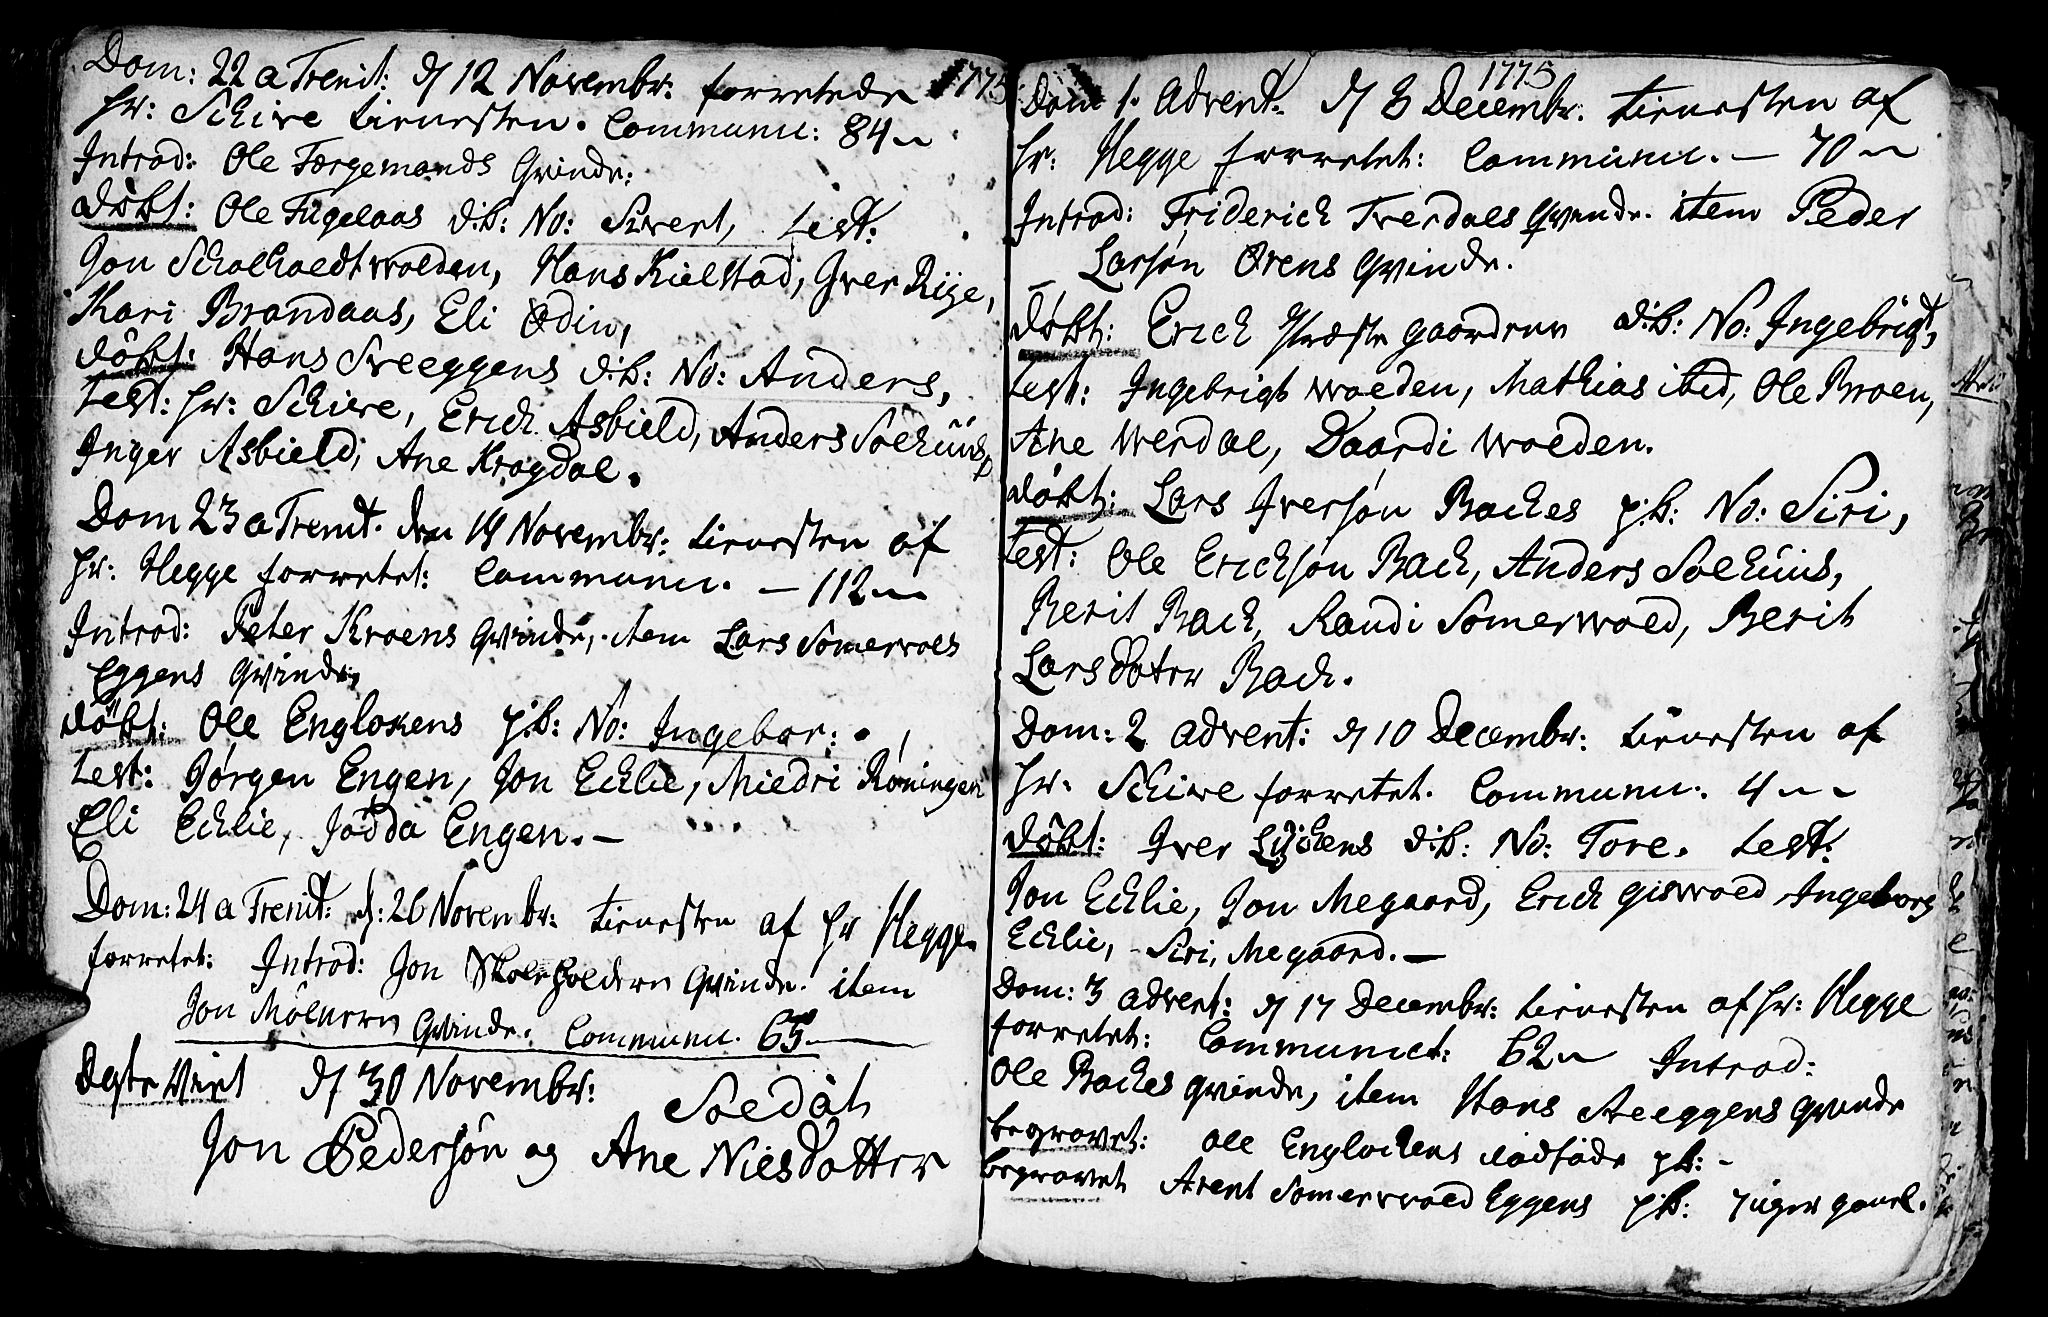 1775
Dom: 22 a Trenit: d 12 Novembr: forretede
Hr: Schive tienesten. Communic: 84
Introd: Ole Færgemands Qvinde.
Døbt: Ole Fugelaas d:b: No: Sivert, test:
Jon Scholholdtwolden, Hans Kielstad, Iver Rÿe,
Kari Brandaas, Eli Ødin,
døbt: Hans Sveeggens d:b: No: Anders,
test: Hr: Schive, Erich Asbield, Anders Solhuus,
Inger Asbield, Ane Krogdal.
Dom 23 a Trenit. den 19 Novembr: tienesten af
Hr: Hegge forretet: Communic. — 112
Introd: Peter Kroens Qvinde, item Lars Somervols
Eggens Qvinde,
døbt: Ole Englokens p:b: No: Ingebor:
test: Jørgen Engen, Jon Echlie, Miedri Røningen
Eli Echlie, Jødda Engen. —
Dom: 24 a Trenit: d: 26 Novembr: tienesten af Hr Hegge
forretet: Introd: Jon Qvinde. item
Jon Mölnern Qvinde. Communic. 65
Egte Viet d 30 Novembr: Soldat
Jon Pedersøn og Ane Niesdotter
1775
Dom 1. Advent. d 3 Decembr. tienesten af
Hr: Hegge forretet: Communic. — 70
Introd: Friderich Tverdals Qvinde. item Peder
Larsøn Ørens Qvinde.
døbt: Erich Præste gaardenn d:b: No: Ingebrigt,
test: Ingebrigt wolden, Mathias ibid, Ole Broen,
Ane Werdal, Daardi Wolden.
døbt: Lars Iversøn Baches p:b: No: Siri,
test: Ole Erichsøn Bach, Anders Solhuus,
Berit Bach, Randi Somerwold, Berit
Larsdoter Bach.
Dom: 2 advent: d 10 Decembr: tienesten af
Hr. Schive forretet. Communic. 4
døbt: Iver Lÿchens d:b: No: Tore. test:
Jon Echlie, Jon Megaard, Erich Giswold Ingeborg
Echlie, Siri, Megaard. —
Dom: 3 advent: d 17 Decembr: tienesten af Hr: Hegge
forretet: Communict: 62 Introd:
Ole Baches qvinde, item Hans Sveeggens qvinde
begravet: Ole Englochens dødføde p:b: -
begravet Arent Somerwold Eggens p:b: 7 uger gamel.